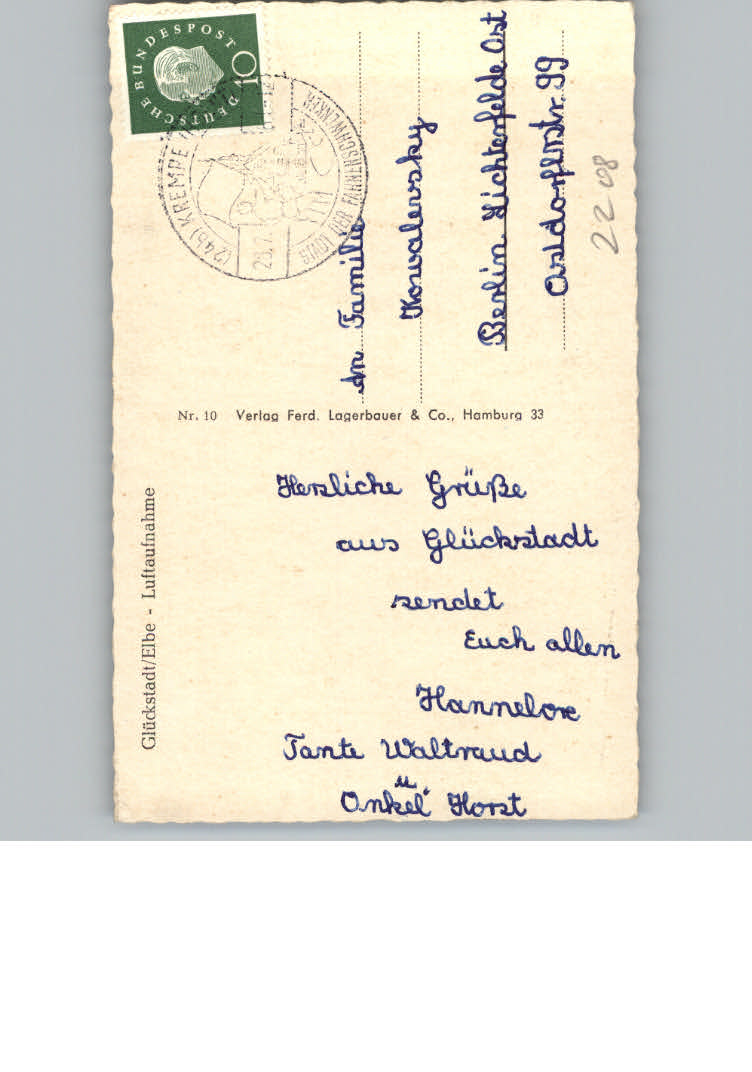 DEUTSCHE BUNDESPOST
10
(24b) KREMPE
STADT DER FAHNENSCHWENKER
An Familie
Kowalewsky
Berlin Lichterfelde Ost
Ostdorfferstr. 99
2208
Nr. 10 Verlag Ferd. Lagerbauer & Co., Hamburg 33
Glückstadt/Elbe - Luftaufnahme
Herzliche Grüße
aus Glückstadt
sendet
Euch allen
Hannelore
Tante Waltraud
u.
Onkel Horst